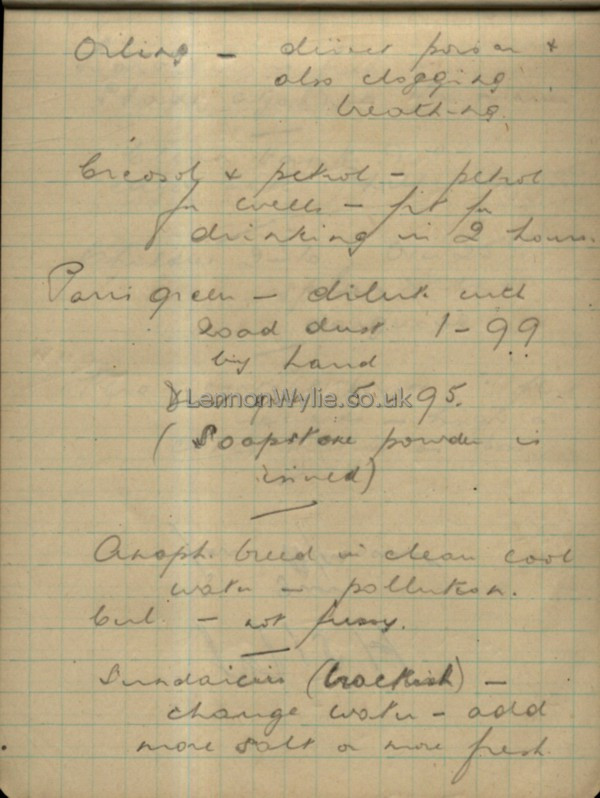 Oiling - direct poison &
also clogging
breathing.
Creosol & petrol - petrol
for wells - fit for
drinking in 2 hours.
Paris green - dilute with
road dust 1-99
by hand
5-95.
LemonWylie.co.uk
(Soapstone powder is
mixed)
Anoph. breed in clean cool
water - pollution.
Cul. - not fussy.
Sundaicus (brackish) -
change water - add
more salt or more fresh.